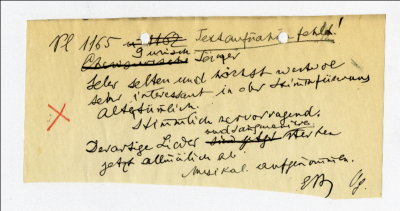 Pl 1165 u 1162 Textaufnahme fehlt!
Gurisch
Chewsurische Sänger
Sehr selten und höchst wertvol
sehr interessant in der Stimmführung
Altertümlich.
Stimmlich hervorragend.
Derartige Lieder sind jetzt sterben
jetzt allmälich ab.
Musikal. aufgenommen.